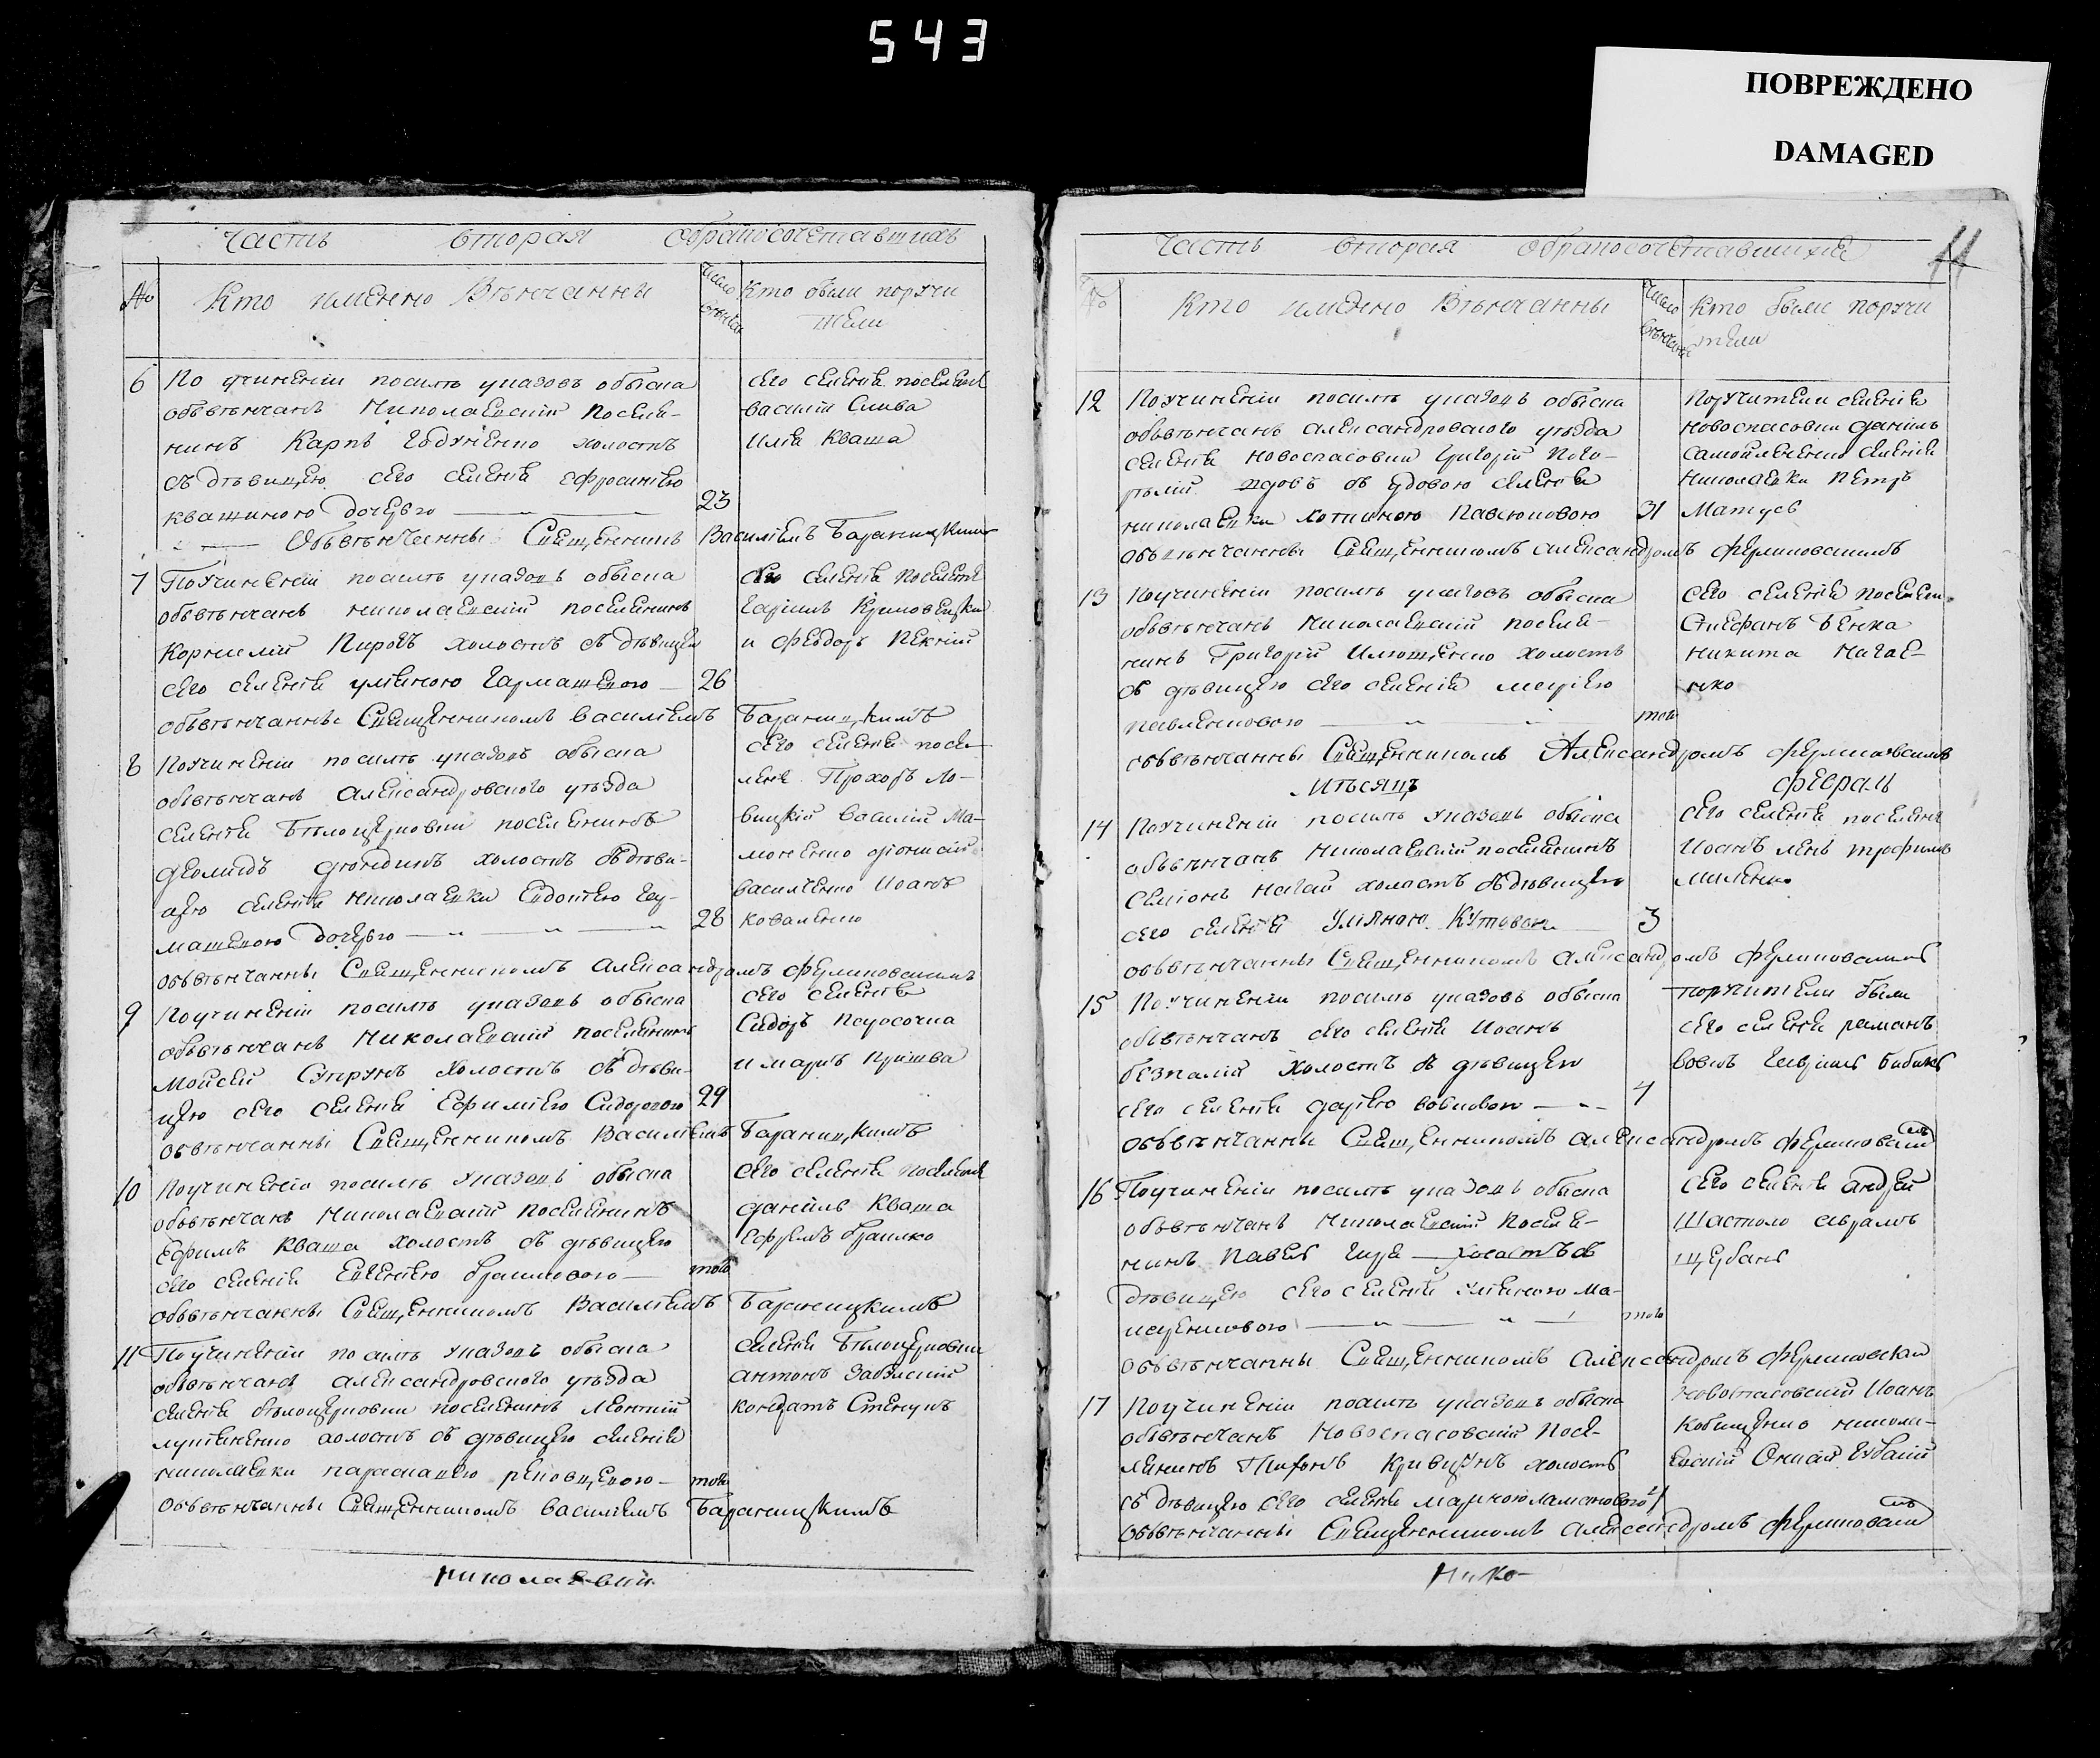 543
ПОВРЕЖДЕНО
DAMAGED
Часть вторая обракосочетавшихъ
№ Кто именно Вѣнчанны
число вѣнчан
Кто были поручи
тели
6 По учиненіи посилѣ указовъ обыска
обвѣнчанъ Николаевскій Поселя-
нинъ Карпъ Годуненко холостъ
съ дѣвицею сего селенія Ефросиніею
квашиною дочерью 23
сего селенія поселяне
василій Слива
Илія Кваша
Обвѣнчанны Священникъ Василіемъ Бараницкимъ
7 Поучиненіи посилѣ указовъ обыска
обвѣнчанъ николаевскій поселянинъ
Корнилій Пировъ холостъ съ дѣвицею
сего селенія уліяною Гармашевою 26
сего селенія поселяне
Гаріилъ Климовицкій
и Феодоръ Пекній
обвѣнчанны Священникомъ василіемъ Бараницкимъ
8 Поучиненіи посилѣ указовъ обыска
обвѣнчанъ Александровского уѣзда
селенія Бѣлоцерковки поселянинъ
Деомидъ холостъ съ дѣви-
цею селенія николаевки Евдокіею Гар-
машевою дочерью 28
сего селенія посе-
ляне Прохоръ Ло-
вицкій василій Ма-
моненко діонисій
василченко Иоанъ
коваленко
обвѣнчанны Священникомъ александромъ Фелиновскимъ
9 Поучиненіи посилѣ указовъ обыска
обвѣнчанъ Николаевскій поселянинъ
Мойсей Супрунъ холостъ съ дѣви-
цею сего селенія Ефиміею Сидоровою 29
сего селенія
Сидоръ
и маркъ Кришва
обвѣнчанны Священникомъ Василіемъ Бараницкимъ
10 Поучиненіи посилѣ указовъ обыска
обвѣнчанъ Николаевскій поселянинъ
Ефимъ Кваша холостъ съ дѣвицею
сего селенія Евгеніею браилковою тогож
сего селенія поселяне
даніилъ Кваша
Ефремъ браилко
обвѣнчанны Священникомъ Василіемъ Бараницкимъ
11 Поучиненіи посилѣ указовъ обыска
обвѣнчанъ александровского уѣзда
селенія бѣлоцерковки поселянинъ Леонтій
холостъ съ дѣвицею селенія
николаевки параскавіею тогож
селенія Бѣлоцерковки
антонъ
кондратъ Стенунъ
обвѣнчанны Священникомъ василіемъ Бараницкимъ
Николаевскій
Часть вторая обракосочетавшихся
11
№ Кто именно Вѣнчанны
число вѣнчанія
Кто были поручи
тели
12 Поучиненіи посилѣ указовъ обыска
обвѣнчанъ александровского уѣзда
селенія новоспасовки Григорій Пого-
рѣлій вдовъ съ вдовою селенія
николаевки Хотиною Павлюковою 31
Поручители селенія
новоспасовки даніилъ
самойленко селенія
николаевки Петръ
Матусъ
обвѣнчанны Священникомъ александромъ Фелиновскимъ
13 Поучиненіи посилѣ указовъ обыска
обвѣнчанъ Николаевскій поселя-
нинъ Григорій Илющенко холостъ
съ дѣвицею сего селенія маріею
павленковою тогож
сего селенія поселяни
Стиефанъ Бенка
никита Нагає-
нко
обвѣнчанны Священникомъ Александромъ Фелиновскимъ
Мѣсяцъ Февраль
14 Поучиненіи посилѣ указовъ обыска
обвѣнчанъ Николаевскій поселянинъ
Семіонъ Нагай холостъ съ дѣвицею
сего селенія Уліяною Кутовою 3
сего селенія поселяне
Иоанъ лень трофимъ
Миленко
обвѣнчанны Священникомъ александромъ Фелиновскимъ
15 Поучиненіи посилѣ указовъ обыска
обвѣнчанъ сего селенія Иоанъ
безпалій Холостъ съ дѣвицею
сего селенія даріею вовковою 4
поручители были
сего селенія раманъ
вовкъ Гавріилъ бибикъ
обвѣнчанны Священникомъ александромъ Фелиновскимъ
16 Поучиненіи посилѣ указовъ обыска
обвѣнчанъ Николаевскій Поселя-
нинъ Павелъ Гиря холостъ съ
дѣвицею сего селенія уліяною Ма-
тогож
сего селенія андрей
Шастоло аврамъ
щербань
обвѣнчанны Священникомъ александромъ Фелиновским
17 Поучиненіи посилѣ указовъ обыска
обвѣнчанъ Новоспасовскій Посе-
лянинъ Тихонъ Кривцунъ холостъ
съ дѣвицею сего селенія марфою
новоспасовскій Иоанъ
Кобищенко никола-
евскій Онисій Губаній
обвѣнчанны Священникомъ александромъ Фелиновскимъ
Нико-